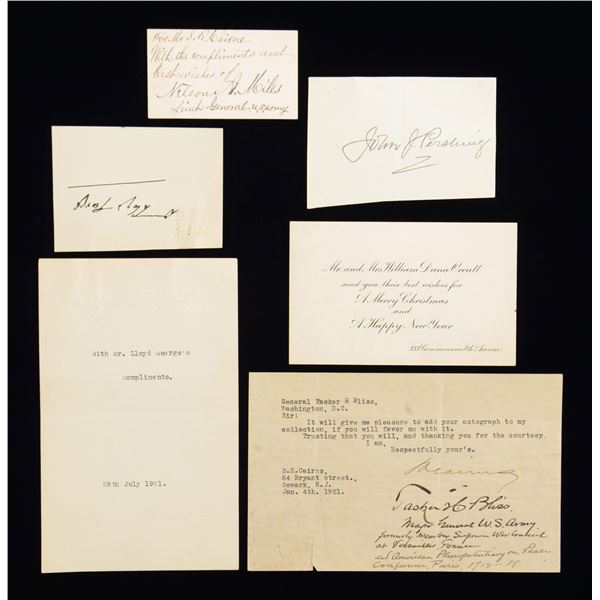 For Mr. S. R. Cairns.
With the compliments and
best wishes of
Nelson A. Miles
Lieut General U.S. Army
John J Pershing
Mr. and Mrs. William Dana Orcutt
send you their best wishes for
A Merry Christmas
and
A Happy New Year
Commonwealth Avenue
With Mr. Lloyd George's
Compliments.
29th July 1921.
General Tasker H Bliss,
Washington, D.C.
Sir:
It will give me pleasure to add your autograph to my
collection, if you will favor me with it.
Trusting that you will, and thanking you for the courtesy.
I am,
Respectfully your's.
S.R.Cairns,
54 Bryant street.,
Newark, N.J.
Jan. 4th. 1921.
Tasker H Bliss.
Major General U.S. Army
formerly Member Supreme War Council
at Versailles, France
and American Plenipotentiary on Peace
Conference, Paris, 1918-19.